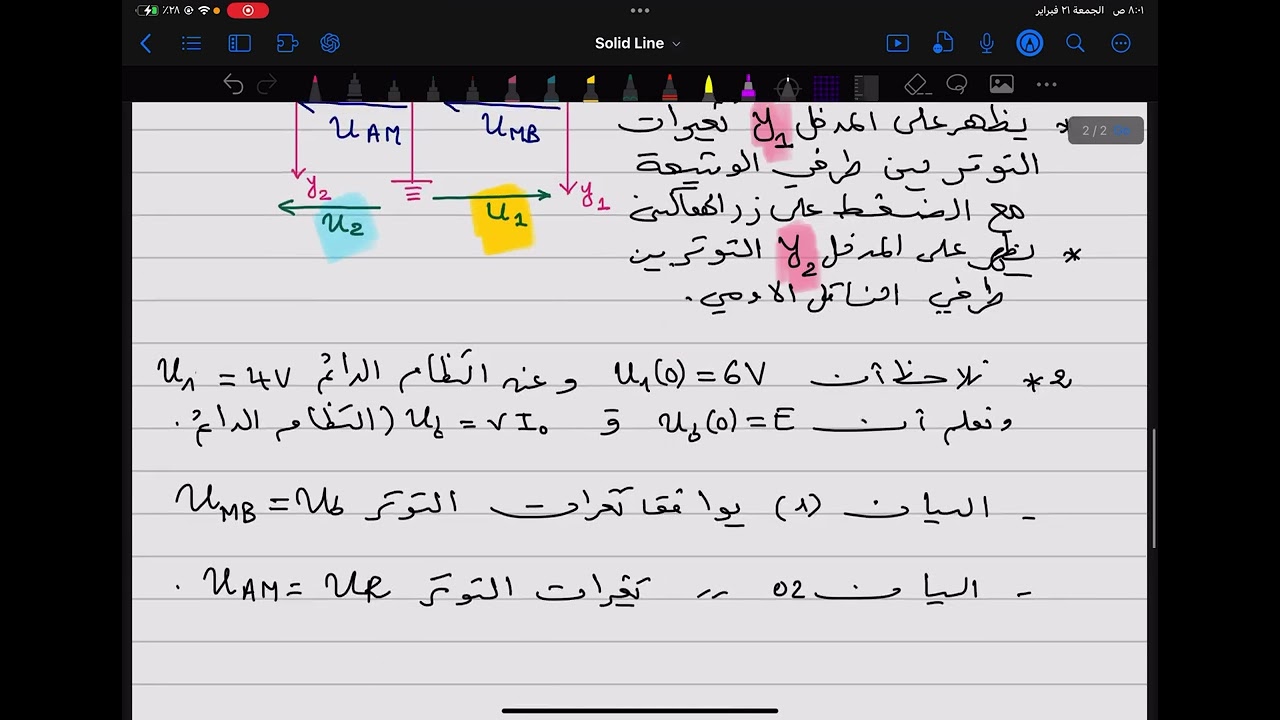 ٨:٠١ ص الجمعة ٢١ فبراير
٪٢٨
Solid Line
2 / 2
U AM
U MB
y2
y1
U2
U1
* يظهر على المدخل y1 تغيرات
التوتر بين طرفي الوشيعة
مع الضغط على زر
* يظهر على المدخل y2 التوتر بين
طرفي الناقل الاومي.
2* نلاحظ أن u1(0) = 6V وعند النظام الدائم u1 = 4V
ونعلم أن ub(0) = E و ub = rI0 (النظام الدائم.
- البيان (1) يوافق تغيرات التوتر UMB = Ub
- البيان 02 ,, تغيرات التوتر UAM = UR.